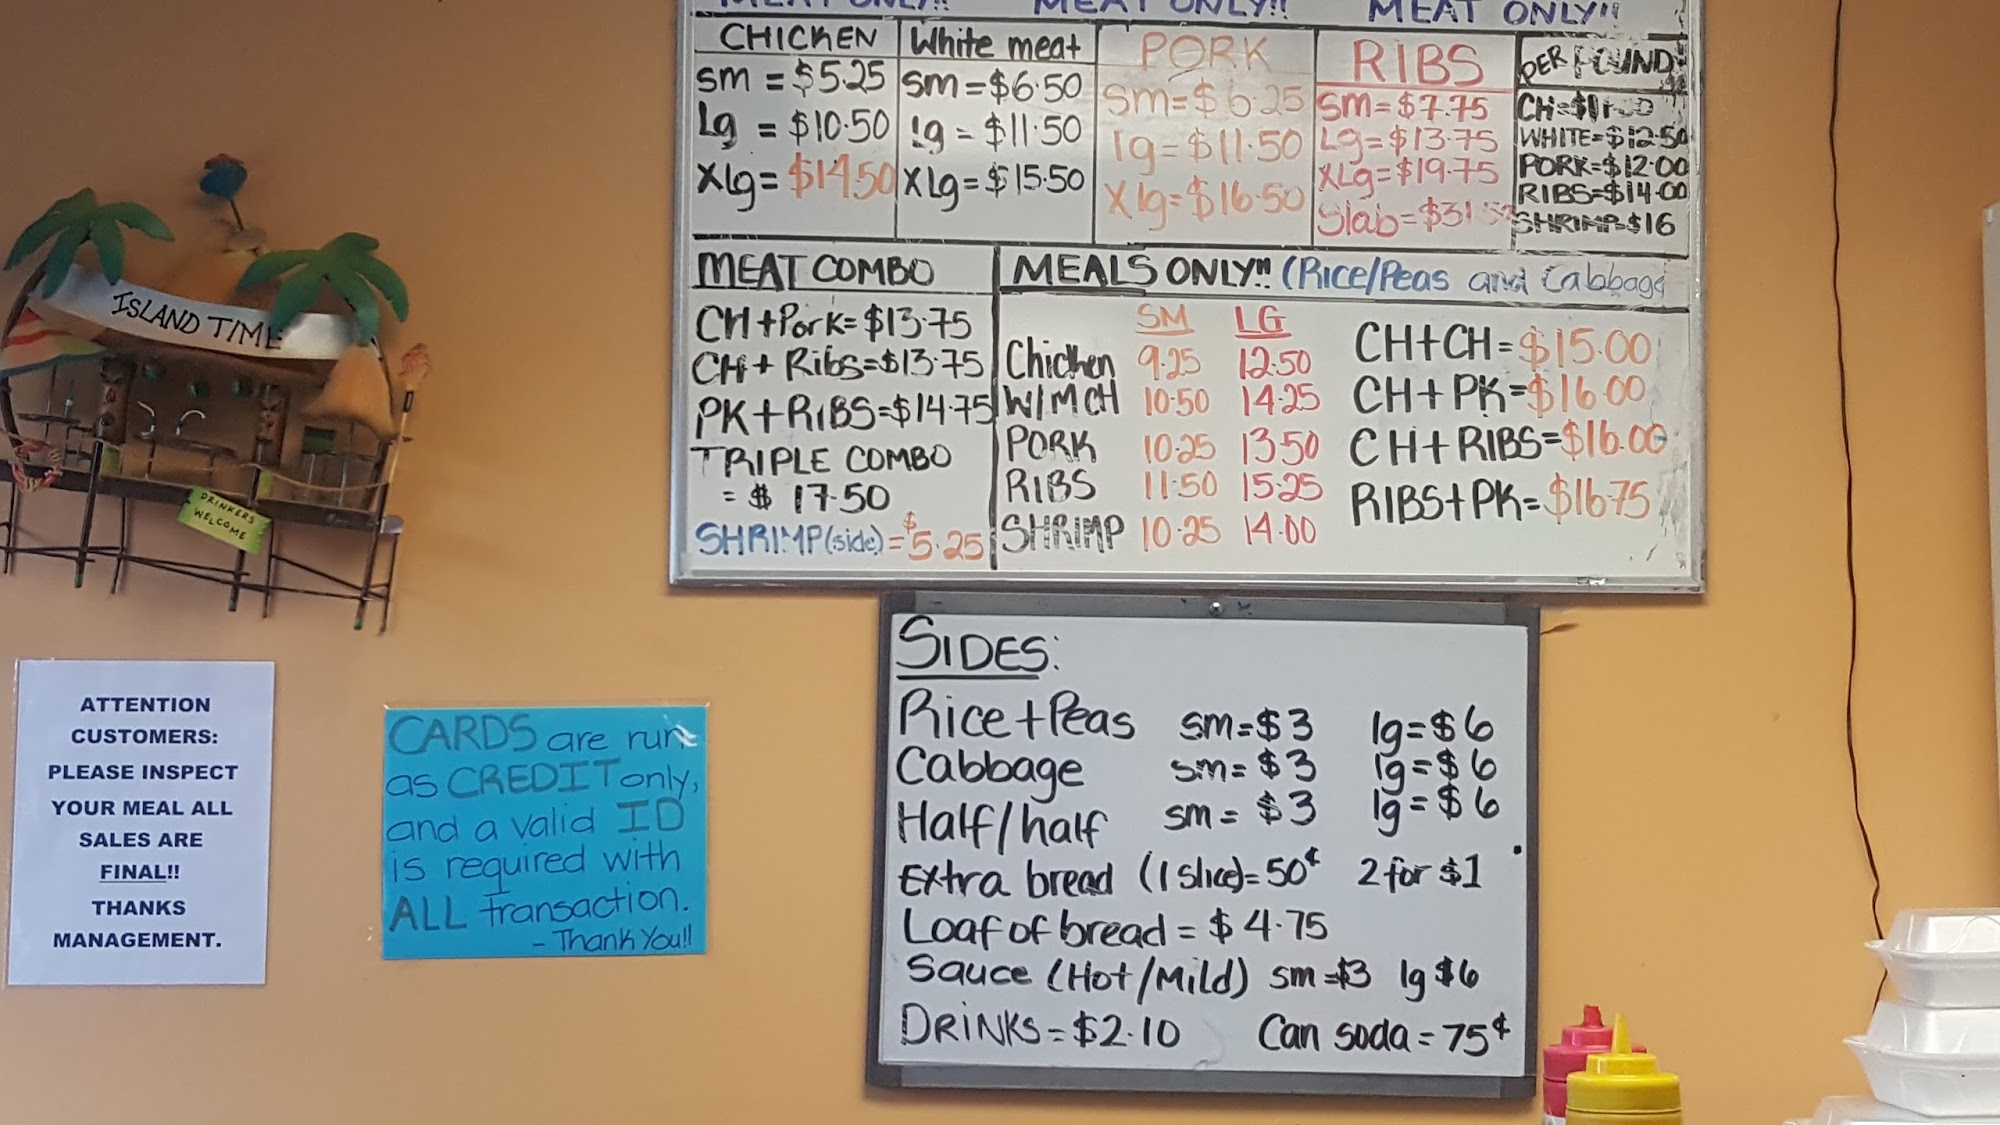 MEAT ONLY!! MEAT ONLY!! MEAT ONLY!!
CHICKEN
sm = $5.25
Lg = $10.50
XLg = $14.50
White meat
sm = $6.50
lg = $11.50
XLg = $15.50
PORK
Sm = $6.25
lg = $11.50
Xlg = $16.50
RIBS
Sm = $7.75
Lg = $13.75
XLg = $19.75
Slab = $31.
PER POUND
CH =
WHITE = $12.50
PORK = $12.00
RIBS = $14.00
SHRIMP = $16
MEAT COMBO
CH + Pork = $13.75
CH + Ribs = $13.75
PK + RIBS = $14.75
TRIPLE COMBO
= $ 17.50
SHRIMP (side) = $5.25
MEALS ONLY!! (Rice/Peas and Cabbage
SM LG
Chicken 9.25 12.50
W/M CH 10.50 14.25
PORK 10.25 13.50
RIBS 11.50 15.25
SHRIMP 10.25 14.00
CH+CH = $15.00
CH + PK = $16.00
CH + RIBS = $16.00
RIBS + PK = $16.75
ISLAND TIME
DRINKERS
WELCOME
ATTENTION
CUSTOMERS:
PLEASE INSPECT
YOUR MEAL ALL
SALES ARE
FINAL!!
THANKS
MANAGEMENT.
CARDS are run
as CREDIT only,
and a valid ID
is required with
ALL transaction.
- Thank You!!
SIDES:
Rice + Peas sm = $3 lg = $6
Cabbage sm = $3 lg = $6
Half/half sm = $3 lg = $6
Extra bread (1 slice) = 50¢ 2 for $1
Loaf of bread = $4.75
Sauce (Hot/Mild) sm = $3 lg $6
DRINKS = $2.10 Can soda = 75¢